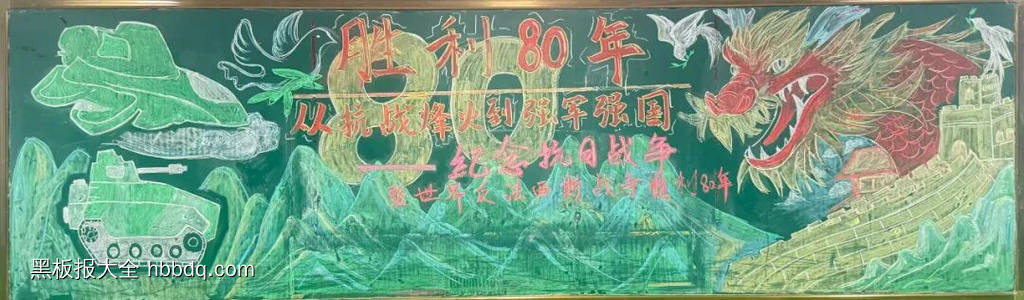 胜利80年
80
从抗战烽火到强军强国
——纪念抗日战争
暨世界反法西斯战争胜利80年
黑板报大全 hbbdq.com